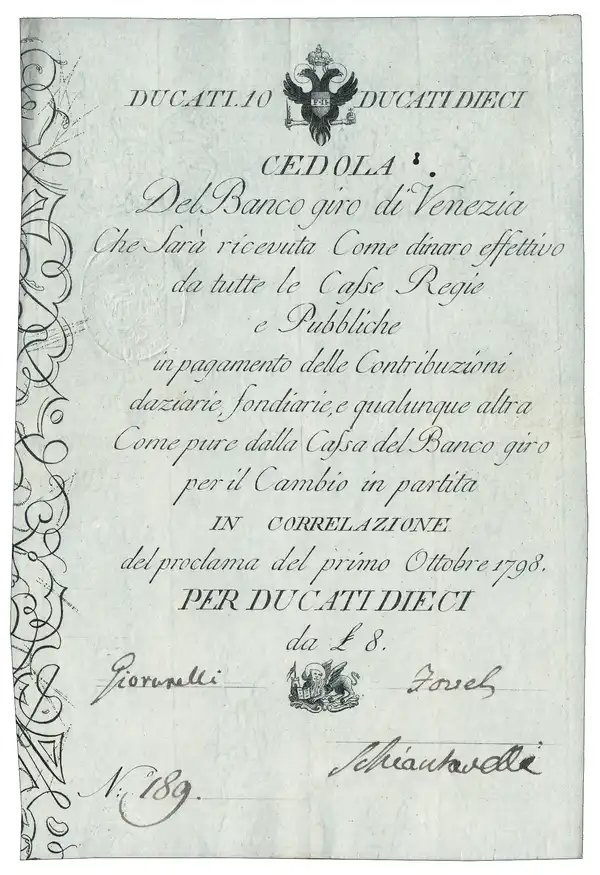 DUCATI.10 DUCATI DIECI
F·II·
CEDOLA
Del Banco giro di Venezia
Che Sarà ricevuta Come dinaro effettivo
da tutte le Caſse Regie
e Pubbliche
in pagamento delle Contribuzioni
daziarie, fondiarie, e qualunque altra
Come pure dalla Caſsa del Banco giro
per il Cambio in partita
IN CORRELAZIONE
del proclama del primo Ottobre 1798.
PER DUCATI DIECI
da £ 8.
N.º 189.